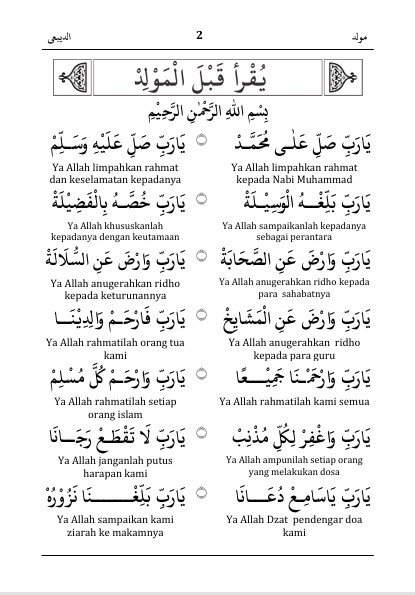 مولد 2 الديبعي
يُقْرَأُ قَبْلَ الْمَوْلِدْ
بِسْمِ اللهِ الرَّحْمٰنِ الرَّحِيْمِ
يَارَبِّ صَلِّ عَلٰى مُحَمَّدْ يَارَبِّ صَلِّ عَلَيْهِ وَسَلِّمْ
Ya Allah limpahkan rahmat kepada Nabi Muhammad
Ya Allah limpahkan rahmat dan keselamatan kepadanya
يَارَبِّ بَلِّغْهُ الْوَسِيْلَةْ يَارَبِّ خُصَّهُ بِالْفَضِيْلَةْ
Ya Allah sampaikanlah kepadanya sebagai perantara
Ya Allah khususkanlah kepadanya dengan keutamaan
يَارَبِّ وَارْضَ عَنِ الصَّحَابَةْ يَارَبِّ وَارْضَ عَنِ السُّلَالَةْ
Ya Allah anugerahkan ridho kepada para sahabatnya
Ya Allah anugerahkan ridho kepada keturunannya
يَارَبِّ وَارْضَ عَنِ الْمَشَايِخْ يَارَبِّ فَارْحَمْ وَالِدِيْنَا
Ya Allah anugerahkan ridho kepada para guru
Ya Allah rahmatilah orang tua kami
يَارَبِّ وَارْحَمْنَا جَمِيْعًا يَارَبِّ وَارْحَمْ كُلَّ مُسْلِمْ
Ya Allah rahmatilah kami semua
Ya Allah rahmatilah setiap orang islam
يَارَبِّ وَاغْفِرْ لِكُلِّ مُذْنِبْ يَارَبِّ لَا تَقْطَعْ رَجَانَا
Ya Allah ampunilah setiap orang yang melakukan dosa
Ya Allah janganlah putus harapan kami
يَارَبِّ يَاسَامِعْ دُعَانَا يَارَبِّ بَلِّغْنَا نَزُوْرُهْ
Ya Allah Dzat pendengar doa kami
Ya Allah sampaikan kami ziarah ke makamnya